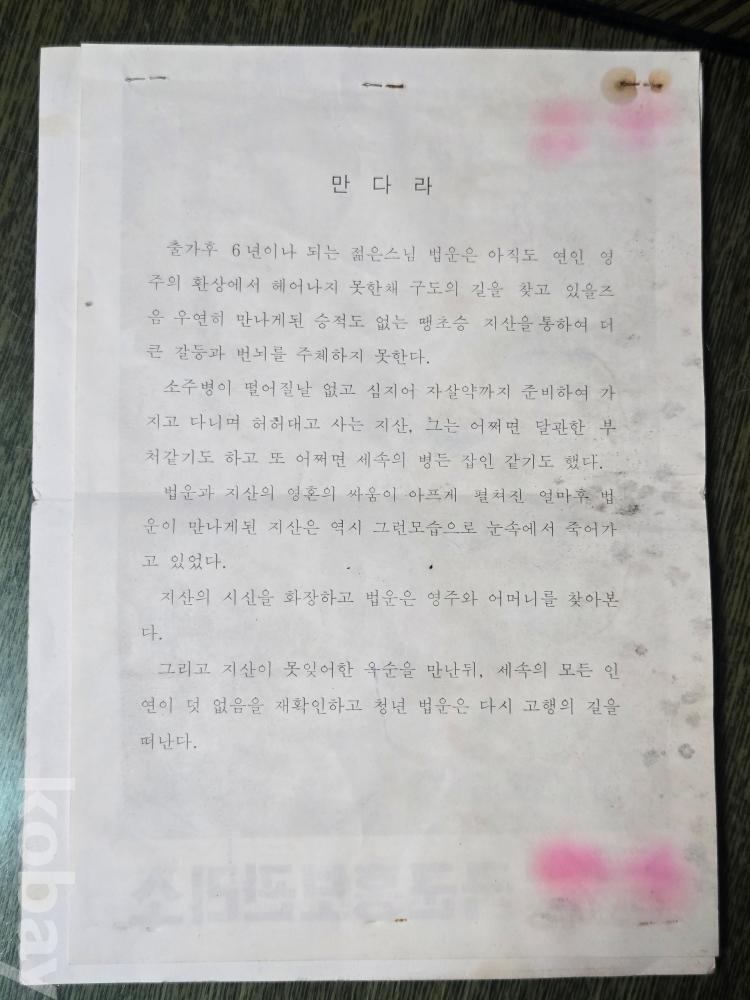 만 다 라
출가후 6년이나 되는 젊은스님 법운은 아직도 연인 영
주의 환상에서 헤어나지 못한채 구도의 길을 찾고 있을즈
음 우연히 만나게된 승적도 없는 땡초승 지산을통하여 더
큰 갈등과 번뇌를 주체하지 못한다.
소주병이 떨어질날 없고 심지어 자살약까지 준비하여 가
지고 다니며 허허대고 사는 지산, 그는 어쩌면 달관한 부
처같기도 하고 또 어쩌면 세속의 병든 잡인 같기도 했다.
법운과 지산의 영혼의 싸움이 아프게 펼쳐진 얼마후 법
운이 만나게된 지산은 역시 그런모습으로 눈속에서 죽어가
고 있었다.
지산의 시신을 화장하고 법운은 영주와 어머니를 찾아본
다.
그리고 지산이 못잊어한 옥순을 만난뒤, 세속의 모든 인
연이 덧 없음을 재확인하고 청년 법운은 다시 고행의 길을
떠난다.
국군홍보관리소
kobay